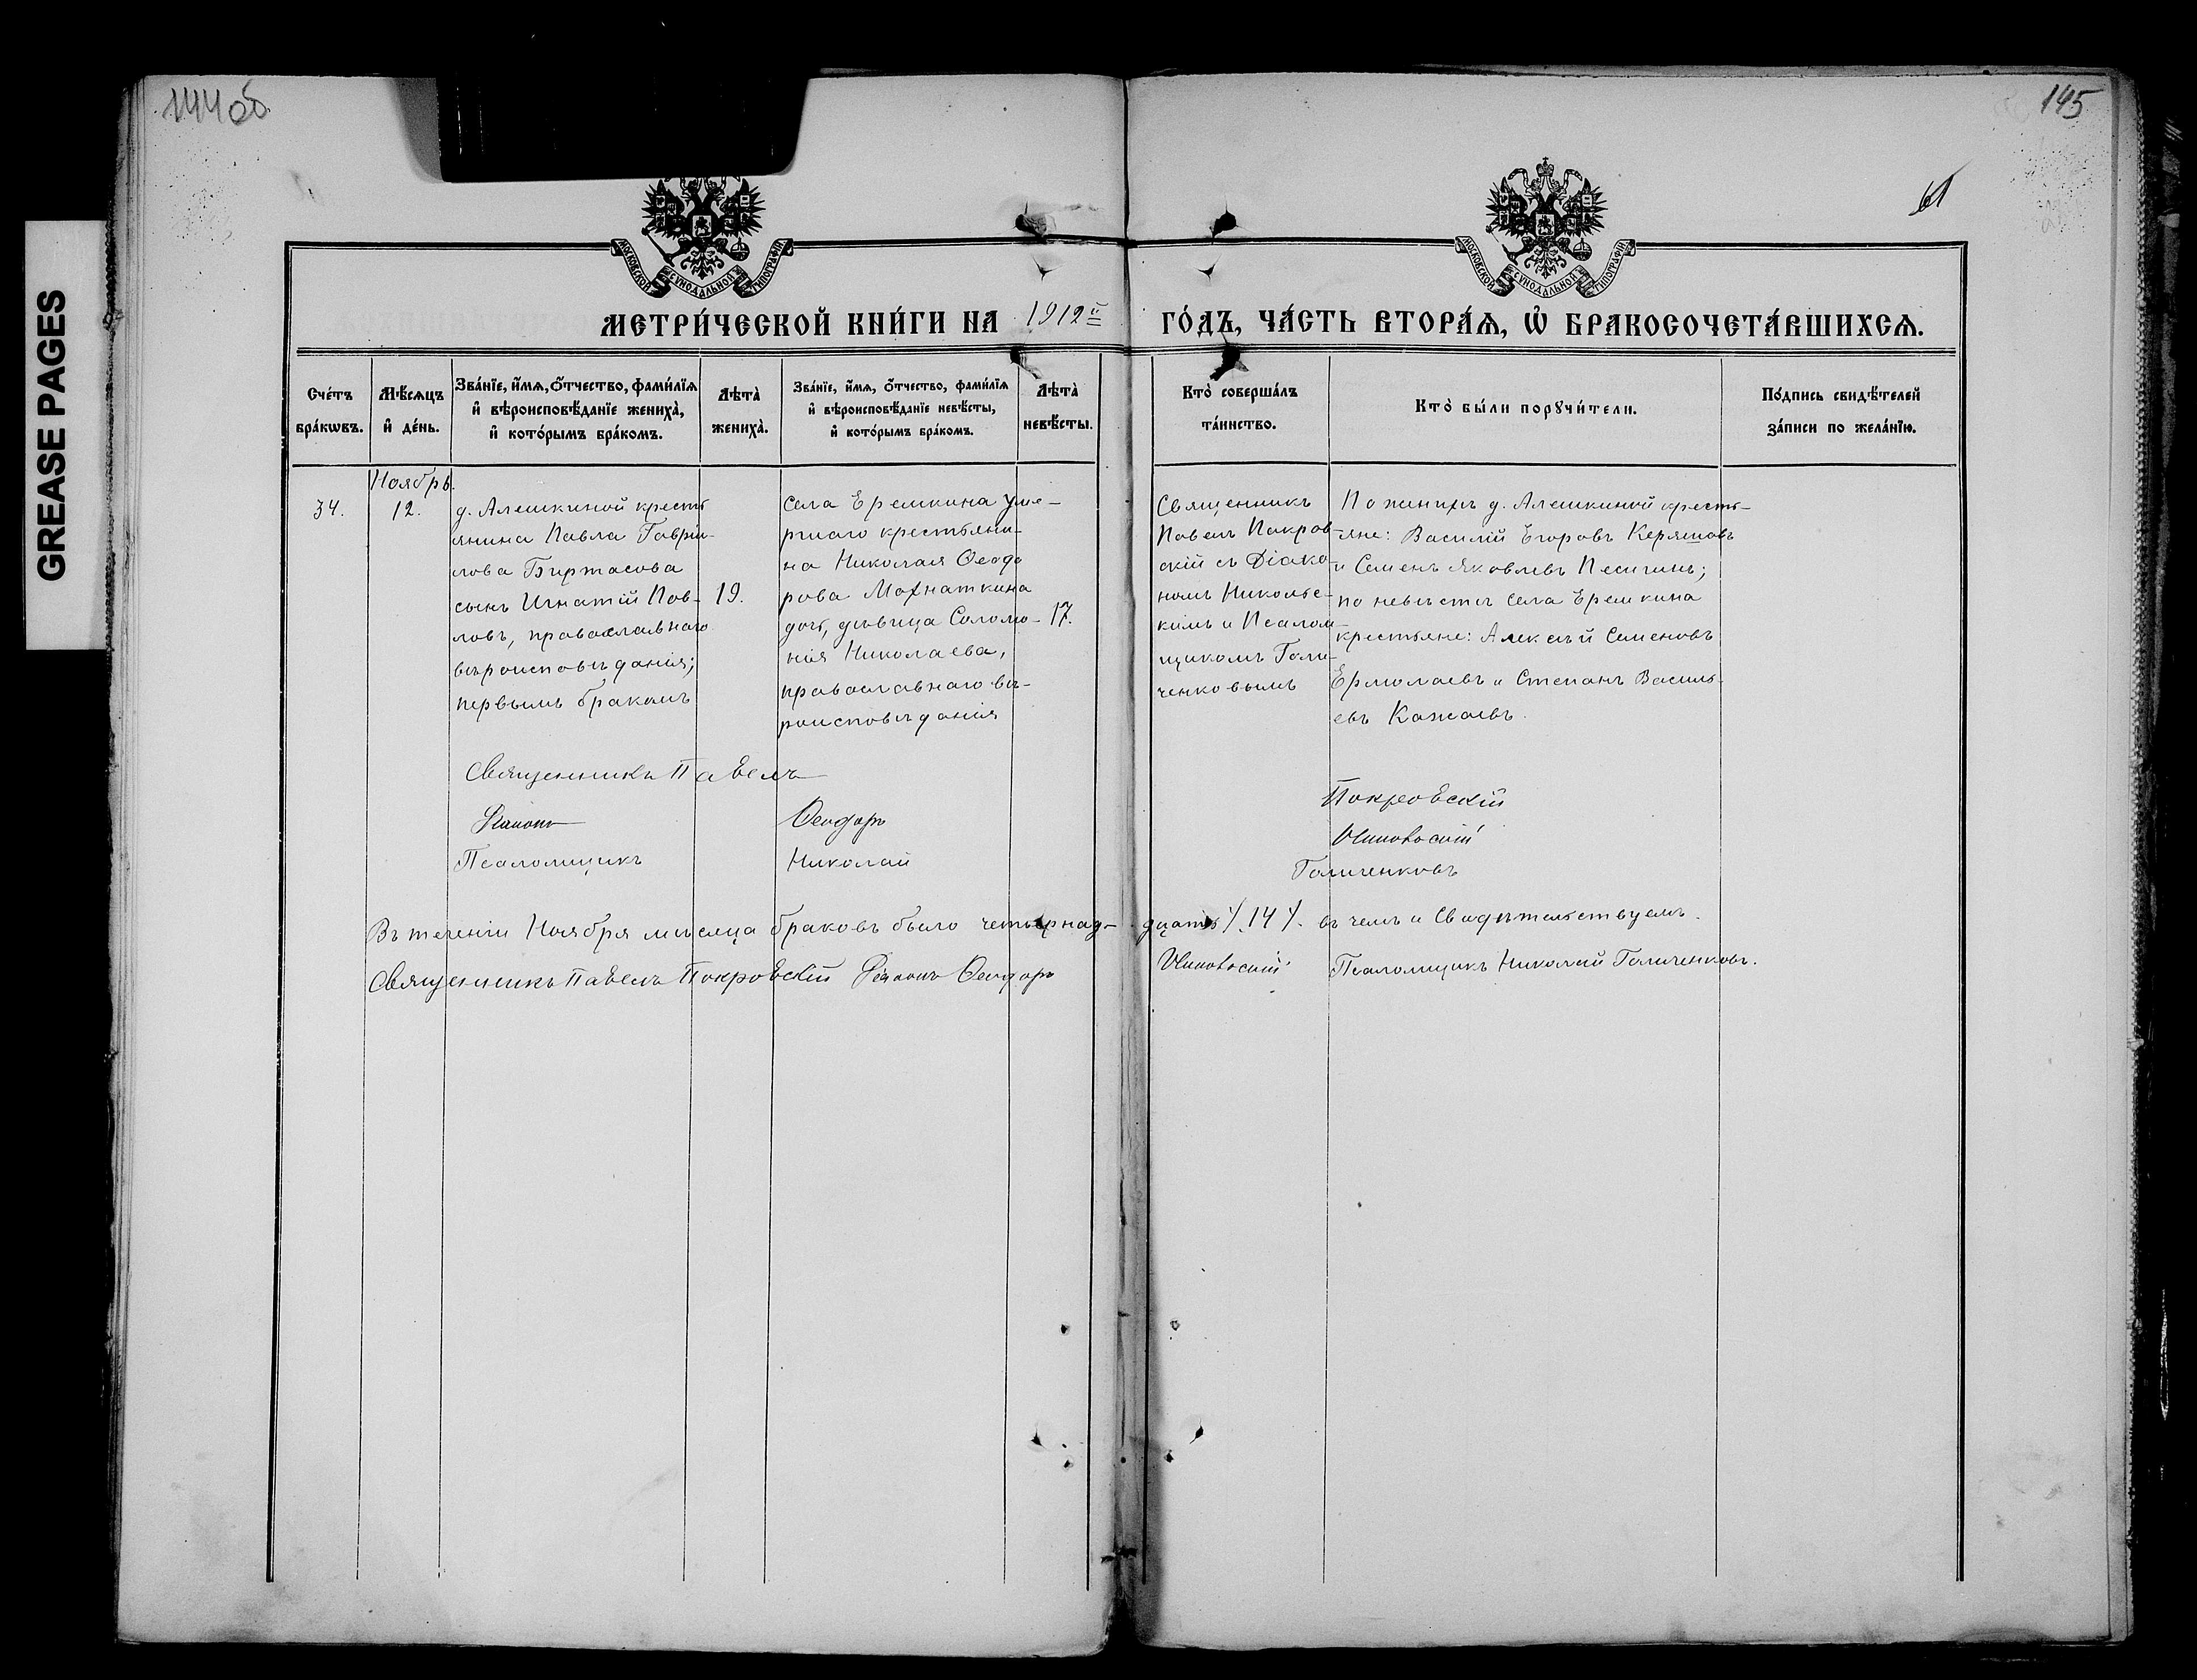 144об.
145
61
GREASE PAGES
МОСКОВСКОЙ СѴНОДАЛЬНОЙ ТИПОГРАФІИ
МОСКОВСКОЙ СѴНОДАЛЬНОЙ ТИПОГРАФІИ
МЕТРИ́ЧЕСКОЙ КНИ́ГИ НА 1912й
ГО́ДЪ, ЧА́СТЬ ВТОРА́Ѧ, Ѡ҆ БРАКОСОЧЕТА́ВШИХСѦ.
Сче́тъ
бра́кѡвъ.
Мѣ́сѧцъ
и҆ де́нь.
Зва́нїе, и҆́мѧ, ѻ҆́тчество, фами́лїѧ
и҆ вѣроисповѣ́данїе жениха̀,
и҆ кото́рымъ бра́комъ.
Лѣта̀
жениха̀.
Зва́нїе, и҆́мѧ, ѻ҆́тчество, фами́лїѧ
и҆ вѣроисповѣ́данїе невѣ́сты,
и҆ кото́рымъ бра́комъ.
Лѣта̀
невѣ́сты.
Кто̀ соверша́лъ
та́инство.
Кто̀ бы́ли порꙋчи́тели.
По́дпись свидѣ́телей
за́писи по жела́нїю.
Ноябрь.
34.
12.
д. Алешкиной кресть
янина Павла Гаврiи-
лова Биртасова
сынъ Игнатiй Пав-
ловъ, православнаго
вѣроисповѣданiя;
первымъ бракомъ
19.
Села Еремкина уме-
ршаго крестьяни-
на Николая Ѳеодо
рова Мохнаткина
дочь, дѣвица Соломо-
нiя Николаева,
православнаго вѣ-
роисповѣданiя
17.
Священникъ
Павелъ Покров
скiй съ Дiако
номъ Никольс-
кимъ и Псалом-
щикомъ Голи-
ченковымъ
По женихѣ д. Алешкиной кресть-
яне: Василiй Егоровъ Керяшовъ
и Семенъ Яковлевъ Песигинъ;
по невѣстѣ села Еремкина
крестьяне: Алексѣй Семеновъ
Ермолаевъ и Степанъ Василь-
евъ Кажаевъ.
Священникъ Павелъ Покровскiй
Дiаконъ Ѳеодоръ Никольскiй
Псаломщикъ Николай Голиченковъ
Въ теченiи Ноября мѣсяца браковъ было четырнад-дцать /.14/. въ чемъ и Свидѣтельствуемъ.
Священникъ Павелъ Покровскiй Дiаконъ Ѳеодоръ Никольскiй Псаломщикъ Николай Голиченковъ.